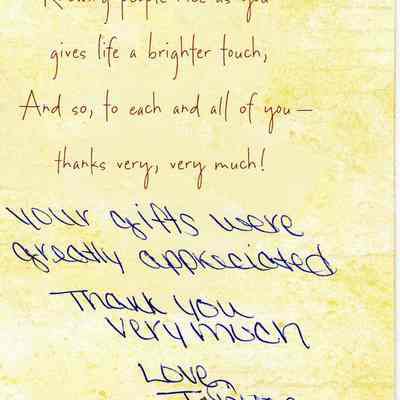 gives life a brighter touch,
And so, to each and all of you —
thanks very, very much!
your gifts were
greatly appreciated
Thank you
very much
Love,